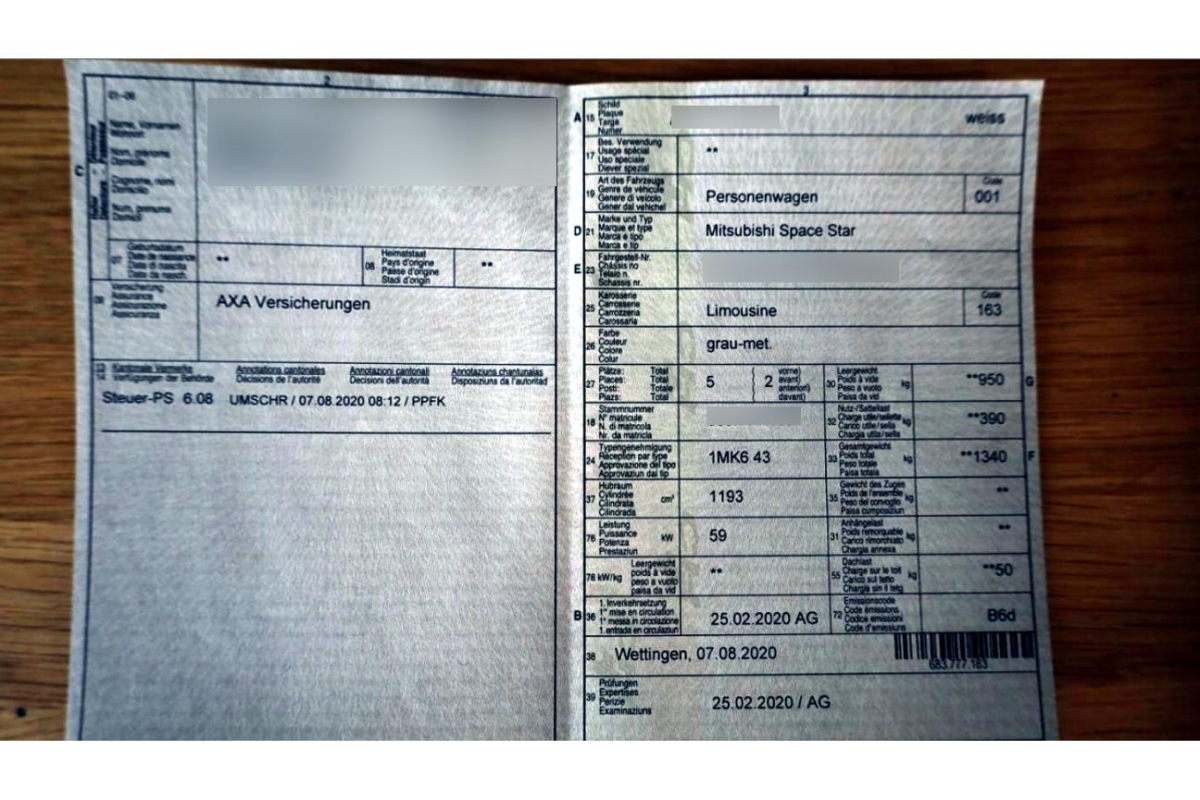 2
01-06
C
Name, Vornamen
Wohnort
Nom, prénoms
Domicile
Cognome, nomi
Domicilio
Num, prenums
Domicil
07 Geburtsdatum
Date de naissance
Data di nascita
Data da nasch.
**
08 Heimatstaat
Pays d'origine
Paese d'origine
Stadi d'origin
**
09 Versicherung
Assurance
Assicurazione
Assicuranza
AXA Versicherungen
13 Kantonale Vermerke Annotations cantonales Annotazioni cantonali Annotaziuns chantunalas
14 Verfügungen der Behörde Décisions de l'autorité Decisioni dell'autorità Disposiziuns da l'autoritad
Steuer-PS 6.08 UMSCHR / 07.08.2020 08:12 / PPFK
3
A 15 Schild
Plaque
Targa
Numer
weiss
17 Bes. Verwendung
Usage spécial
Uso speciale
Diever spezial
**
19 Art des Fahrzeugs
Genre de véhicule
Genere di veicolo
Gener dal vehichel
Personenwagen
Code
001
D 21 Marke und Typ
Marque et type
Marca e tipo
Marca e tip
Mitsubishi Space Star
E 23 Fahrgestell-Nr.
Châssis no
Telaio n.
Schassis nr.
25 Karosserie
Carrosserie
Carrozzeria
Carossaria
Limousine
Code
163
26 Farbe
Couleur
Colore
Colur
grau-met.
27 Plätze: Total
Places: Total
Posti: Totale
Plazs: Total
5
2
vorne)
avant)
anteriori)
davant)
30 Leergewicht
Poids à vide
Peso a vuoto
Paisa da vid
kg
**950
G
18 Stammnummer
N° matricule
N. di matricola
Nr. da matricla
32 Nutz-/Sattellast
Charge utile/sellette
Carico utile/sella
Chargia utila/sella
kg
**390
24 Typengenehmigung
Réception par type
Approvazione del tipo
Approvaziun dal tip
1MK6 43
33 Gesamtgewicht
Poids total
Peso totale
Paisa totala
kg
**1340
F
37 Hubraum
Cylindrée
Cilindrata
Cilindrada
cm³
1193
35 Gewicht des Zuges
Poids de l'ensemble
Peso del convoglio
Paisa cumposiziun
kg
**
76 Leistung
Puissance
Potenza
Prestaziun
kW
59
31 Anhängelast
Poids remorquable
Carico rimorchiato
Chargia annexa
kg
**
78 kW/kg Leergewicht
poids à vide
peso a vuoto
paisa da vid
**
55 Dachlast
Charge sur le toit
Carico sul tetto
Chargia sin il tetg
kg
**50
B 36 1. Inverkehrsetzung
1re mise en circulation
1a messa in circolazione
1. entrada en circulaziun
25.02.2020 AG
72 Emissionscode
Code émissions
Codice emissioni
Code d'emissiuns
B6d
38 Wettingen, 07.08.2020
683.777.183
39 Prüfungen
Expertises
Perizie
Examinaziuns
25.02.2020 / AG